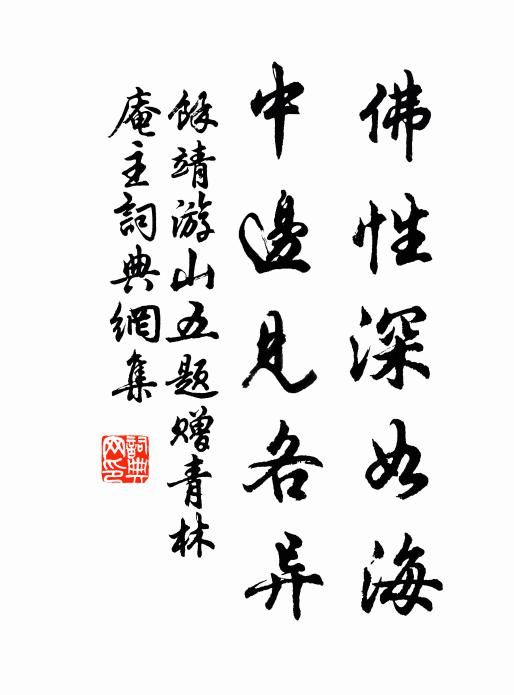 佛性深如海
中邊見各异
餘靖游山五題贈青林
庵主詞典網集
詞典网印